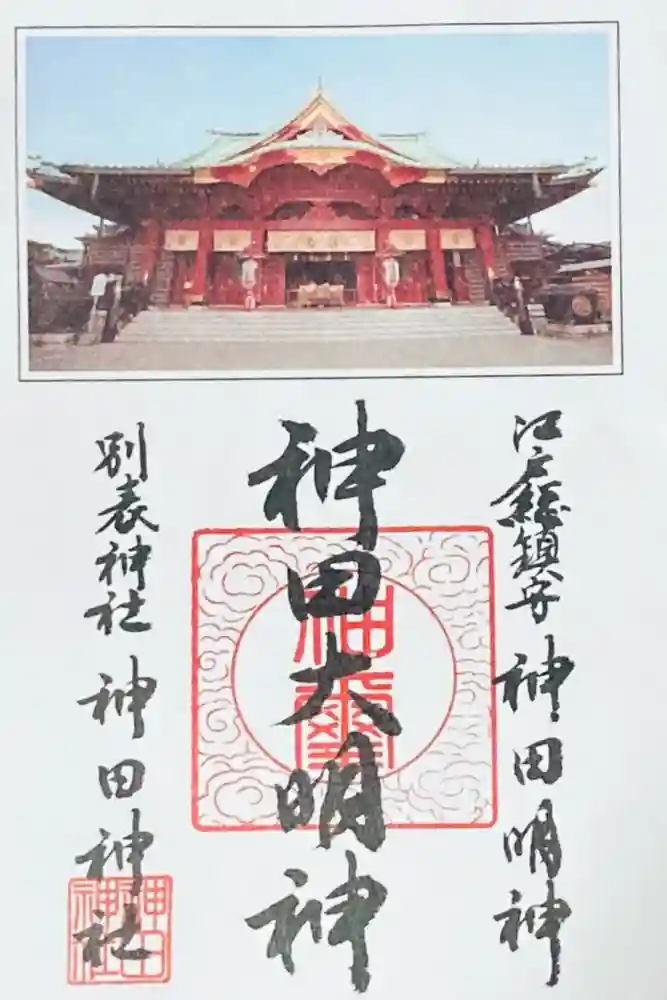 江戸総鎮守 神田明神
神田大明神
別表神社 神田神社
神璽
神田神社